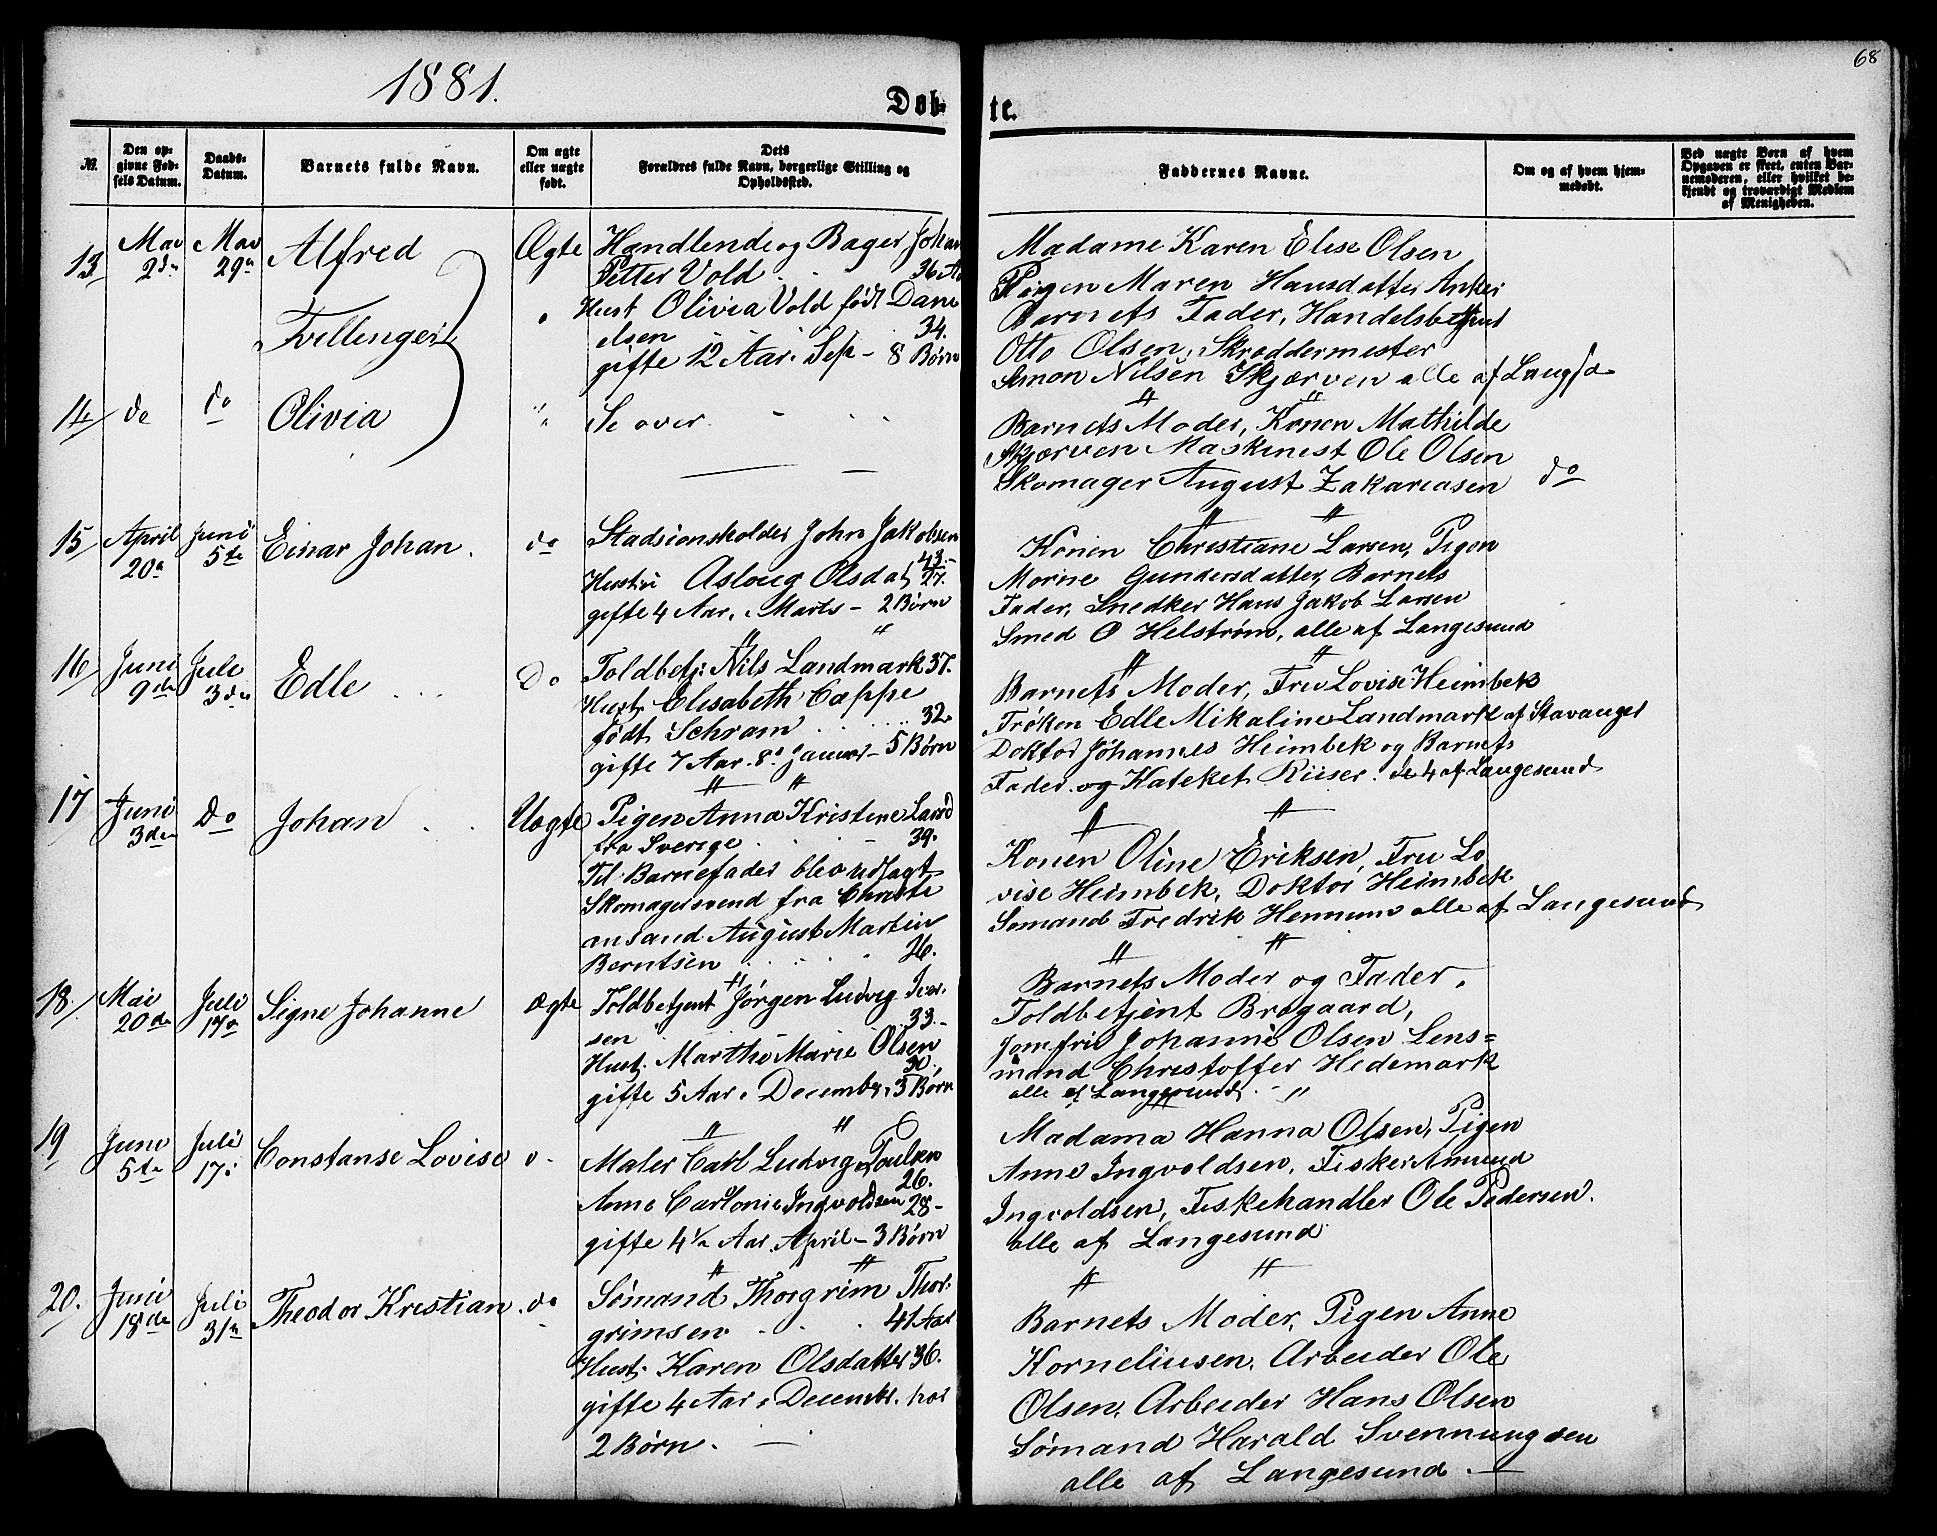 1881.
68
Døb-
te.
No.
Den op-
givne Fød-
sels Datum.
Daabs-
Datum.
Barnets fulde Navn.
Om ægte
eller uægte
født.
Dets
Forældres fulde Navn, borgerlige Stilling og
Opholdssted.
Faddernes Navne.
Om og af hvem hjem-
medøbt.
Ved uægte Børn af hvem
Opgaven er skeet, enten Bar-
nemoderen, eller hvilket be-
kjendt og troværdigt Medlem
af Menigheden.
13
Mai
2den
Mai
29n
Alfred
Tvillinger
Ægte
Handlende og Bager Johan
Petter Vold 36 Aa
Hust Olivia Vold født Dani
elsen 34.
gifte 12 Aar i Sep - 8 Børn
Madame Karen Elise Olsen
Pigen Maren Hansdatter Anker
Barnets Fader, Handelsbetjent
Otto Olsen, Skræddermester
Simon Nilsen Skjærven alle af Langs
14
do
do
Olivia
"
Se over
Barnets Moder, Konen Mathilde
Skjærven Maskinist Ole Olsen
Skomager August Zakariasen do
15
April
20n
Juni
5te
Einar Johan.
do
Stadsionsholder John Jakobsen
43.-
Hustru Aslaug Olsdat 27.
gifte 4 Aar i Marts - 2 Børn
Konen Christiane Larsen, Pigen
Marine Gundersdatter, Barnets
Fader, Snedker Hans Jakob Larsen
Smed O Helstrøm, alle af Langesund
16
Juni
9de
Juli
3den
Edle
Do
Toldbetj: Nils Landmark 37.
Hust. Elisabeth Cappe
født Schram 32.
gifte 7 Aar 8d Januar - 5 Børn
Barnets Moder, Fru Lovise Heimbek
Frøken Edle Mikaline Landmark af Stavanger
Doktor Johannes Heimbek og Barnets
Fader og Kateket Riiser. de 4 af Langesund
17
Juni
3den
do
Johan
Uægte
Pigen Anna Kristine
fra Sverige 39.
Til Barnefader blev udlagt
Skomagersvend fra Christi
ansand August Martin
Berntsen 26.
Konen Oline Eriksen, Fru Lo
vise Heimbek, Doktor Heimbek
Sømand Fredrik Hennum alle af Langesund
18.
Mai
20de
Juli
17n
Signe Johanne
Ægte
Toldbetjent Jørgen Ludvig Iver-
sen 33.-
Hust. Marthe Marie Olsen
30.
gifte 5 Aar i Decembr. 3 Børn
Barnets Moder og Fader.
Toldbetjent Brogaard,
Jomfru Johanne Olsen Lens=
mand Christoffer Hedemark
alle af Langesund.
19
Juni
5te
Juli
17.
Constanse Lovise
Maler Carl Ludvig Poulsen
26.
Anne Carlonie Ingvoldsen 28-
gifte 4½ Aar April - 3 Børn
Madama Hanna Olsen, Pigen
Anne Ingvoldsen, Fisker Amund
Ingvoldsen, Fiskehandler Ole Pedersen.
alle af Langesund
20.
Juni
18de
Juli
31n
Theodor Kristian.
do
Sømand Thorgrim Thor-
grimsen 41 Aar
Hust. Karen Olsdatter 36.
gifte 4 Aar i Decembr. har
2 Børn.
Barnets Moder, Pigen Anne
Korneliusen, Arbeider Ole
Olsen, Arbeider Hans Olsen
Sømand Harald Svennungsen
alle af Langesund.